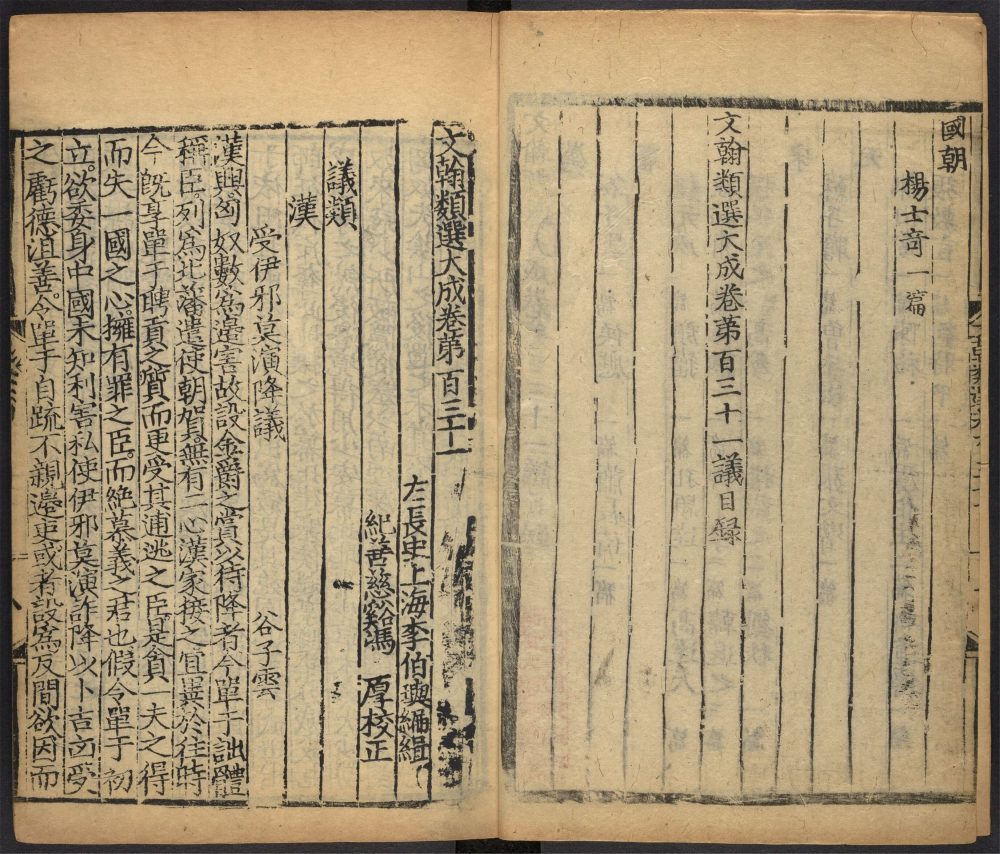 國朝
楊士竒一篇
文翰類選大成卷第百三十一議目録
文翰類選大成卷第百三十一
左長史上海李伯璵編緝
紀善慈谿馮厚校正
議類
漢
受伊邪莫演降議 谷子雲
漢興匈奴數爲邊害故設金爵之賞以待降者今單于詘體
稱臣列爲北藩遣使朝賀無有二心漢家接之宜異於往時
今旣享單于聘貢之質而更受其逋逃之臣是貪一夫之得
而失一國之心擁有罪之臣而絶慕義之君也假令單于初
立欲委身中國未知利害私使伊邪莫演詐降以卜吉凶受
之虧德沮善令單于自疏不親邊吏或者設爲反間欲因而